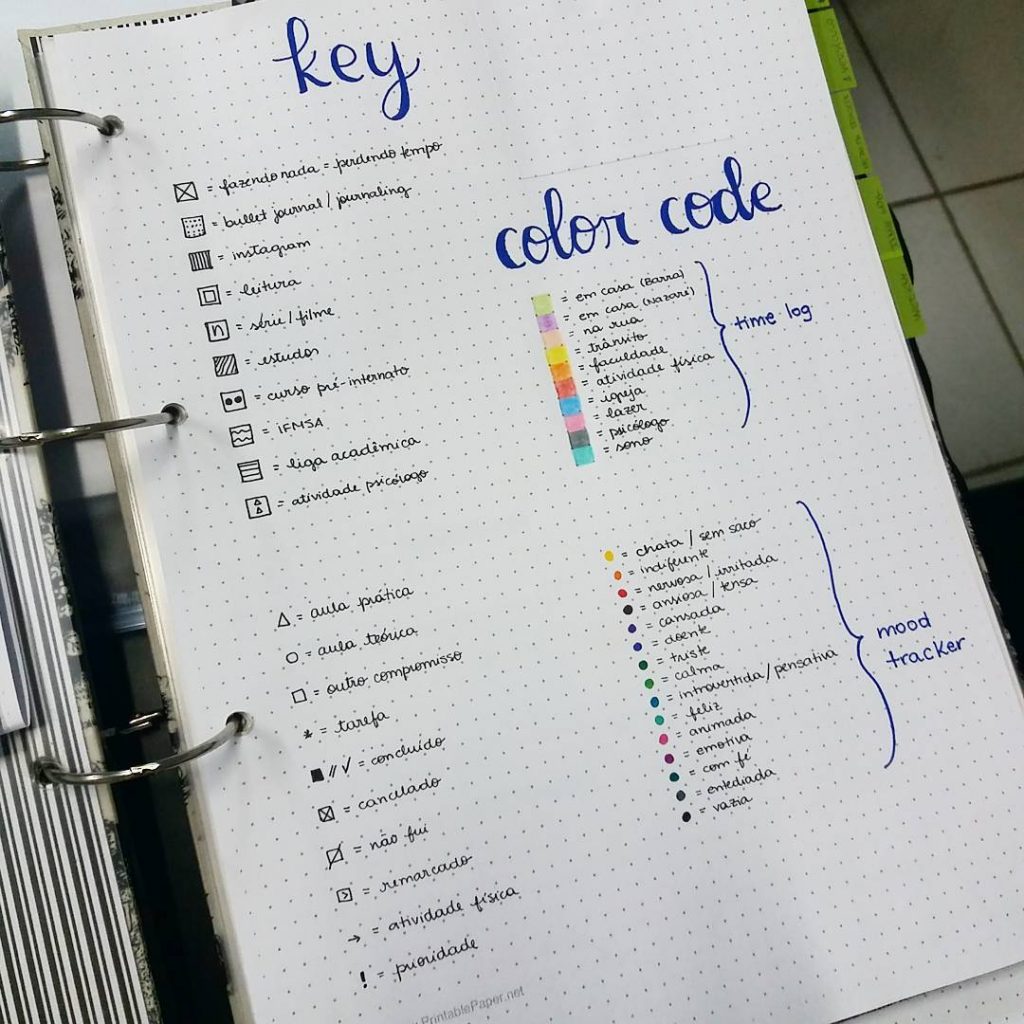 key
= fazendo nada = perdendo tempo
= bullet journal / journaling
= instagram
= leitura
n = série / filme
= estudos
= curso pré-internato
= IFMSA
= liga acadêmica
= atividade psicólogo
△ = aula prática
○ = aula teórica
□ = outro compromisso
* = tarefa
■ // ✓ = concluído
= cancelado
= não fui
= remarcado
→ = atividade física
! = prioridade
PrintablePaper.net
color code
= em casa (Barra)
= em casa (Nazaré)
= na rua
= trânsito
= faculdade
= atividade física
= igreja
= lazer
= psicólogo
= sono
time log
= chata / sem saco
= indiferente
= nervosa / irritada
= ansiosa / tensa
= cansada
= doente
= triste
= calma
= introvertida / pensativa
= feliz
= animada
= emotiva
= com fé
= entediada
= vazia
mood
tracker